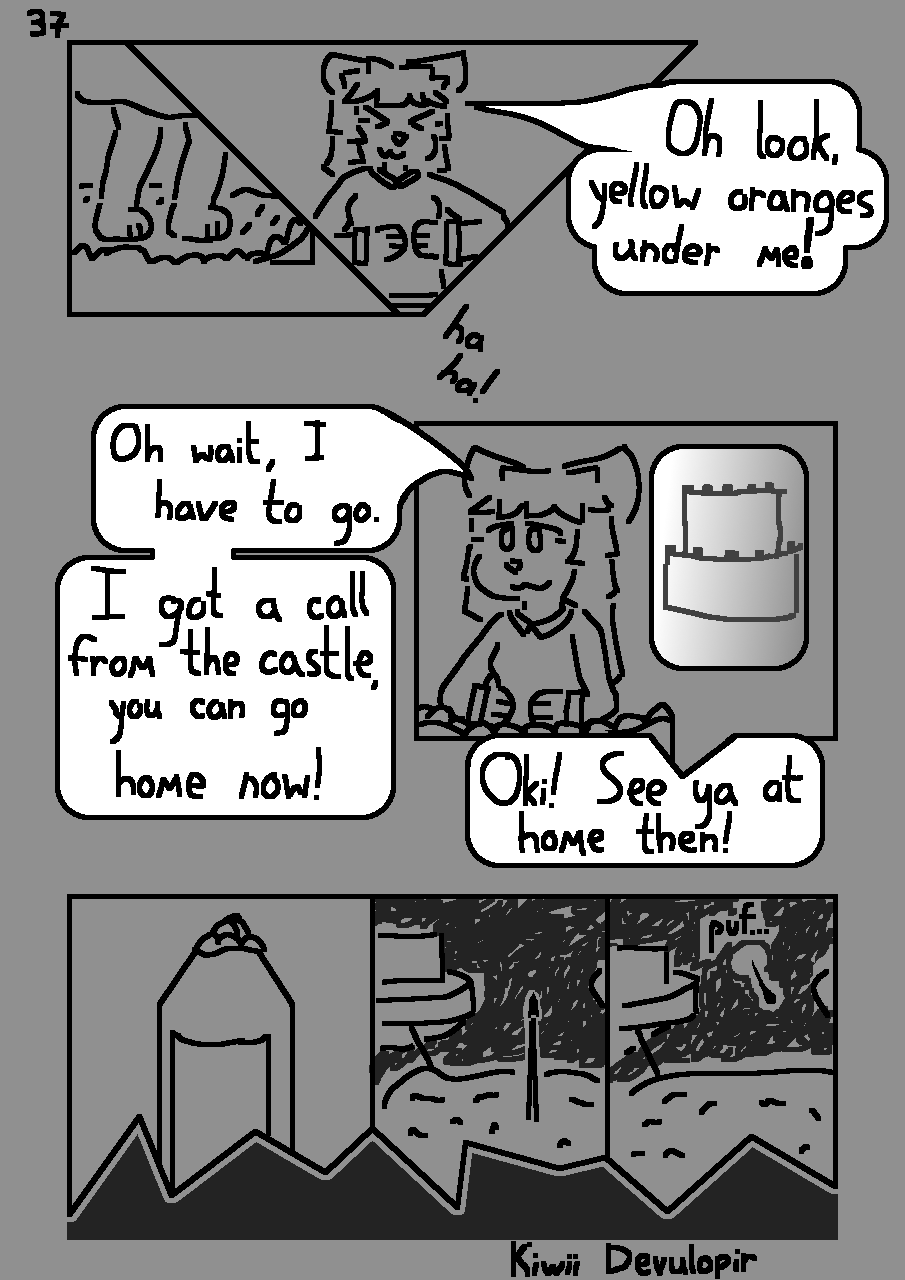 37
Oh look,
yellow oranges
under me!
ha
ha!
Oh wait, I
have to go.
I got a call
from the castle,
you can go
home now!
Oki! See ya at
home then!
puf...
Kiwii Devulopir